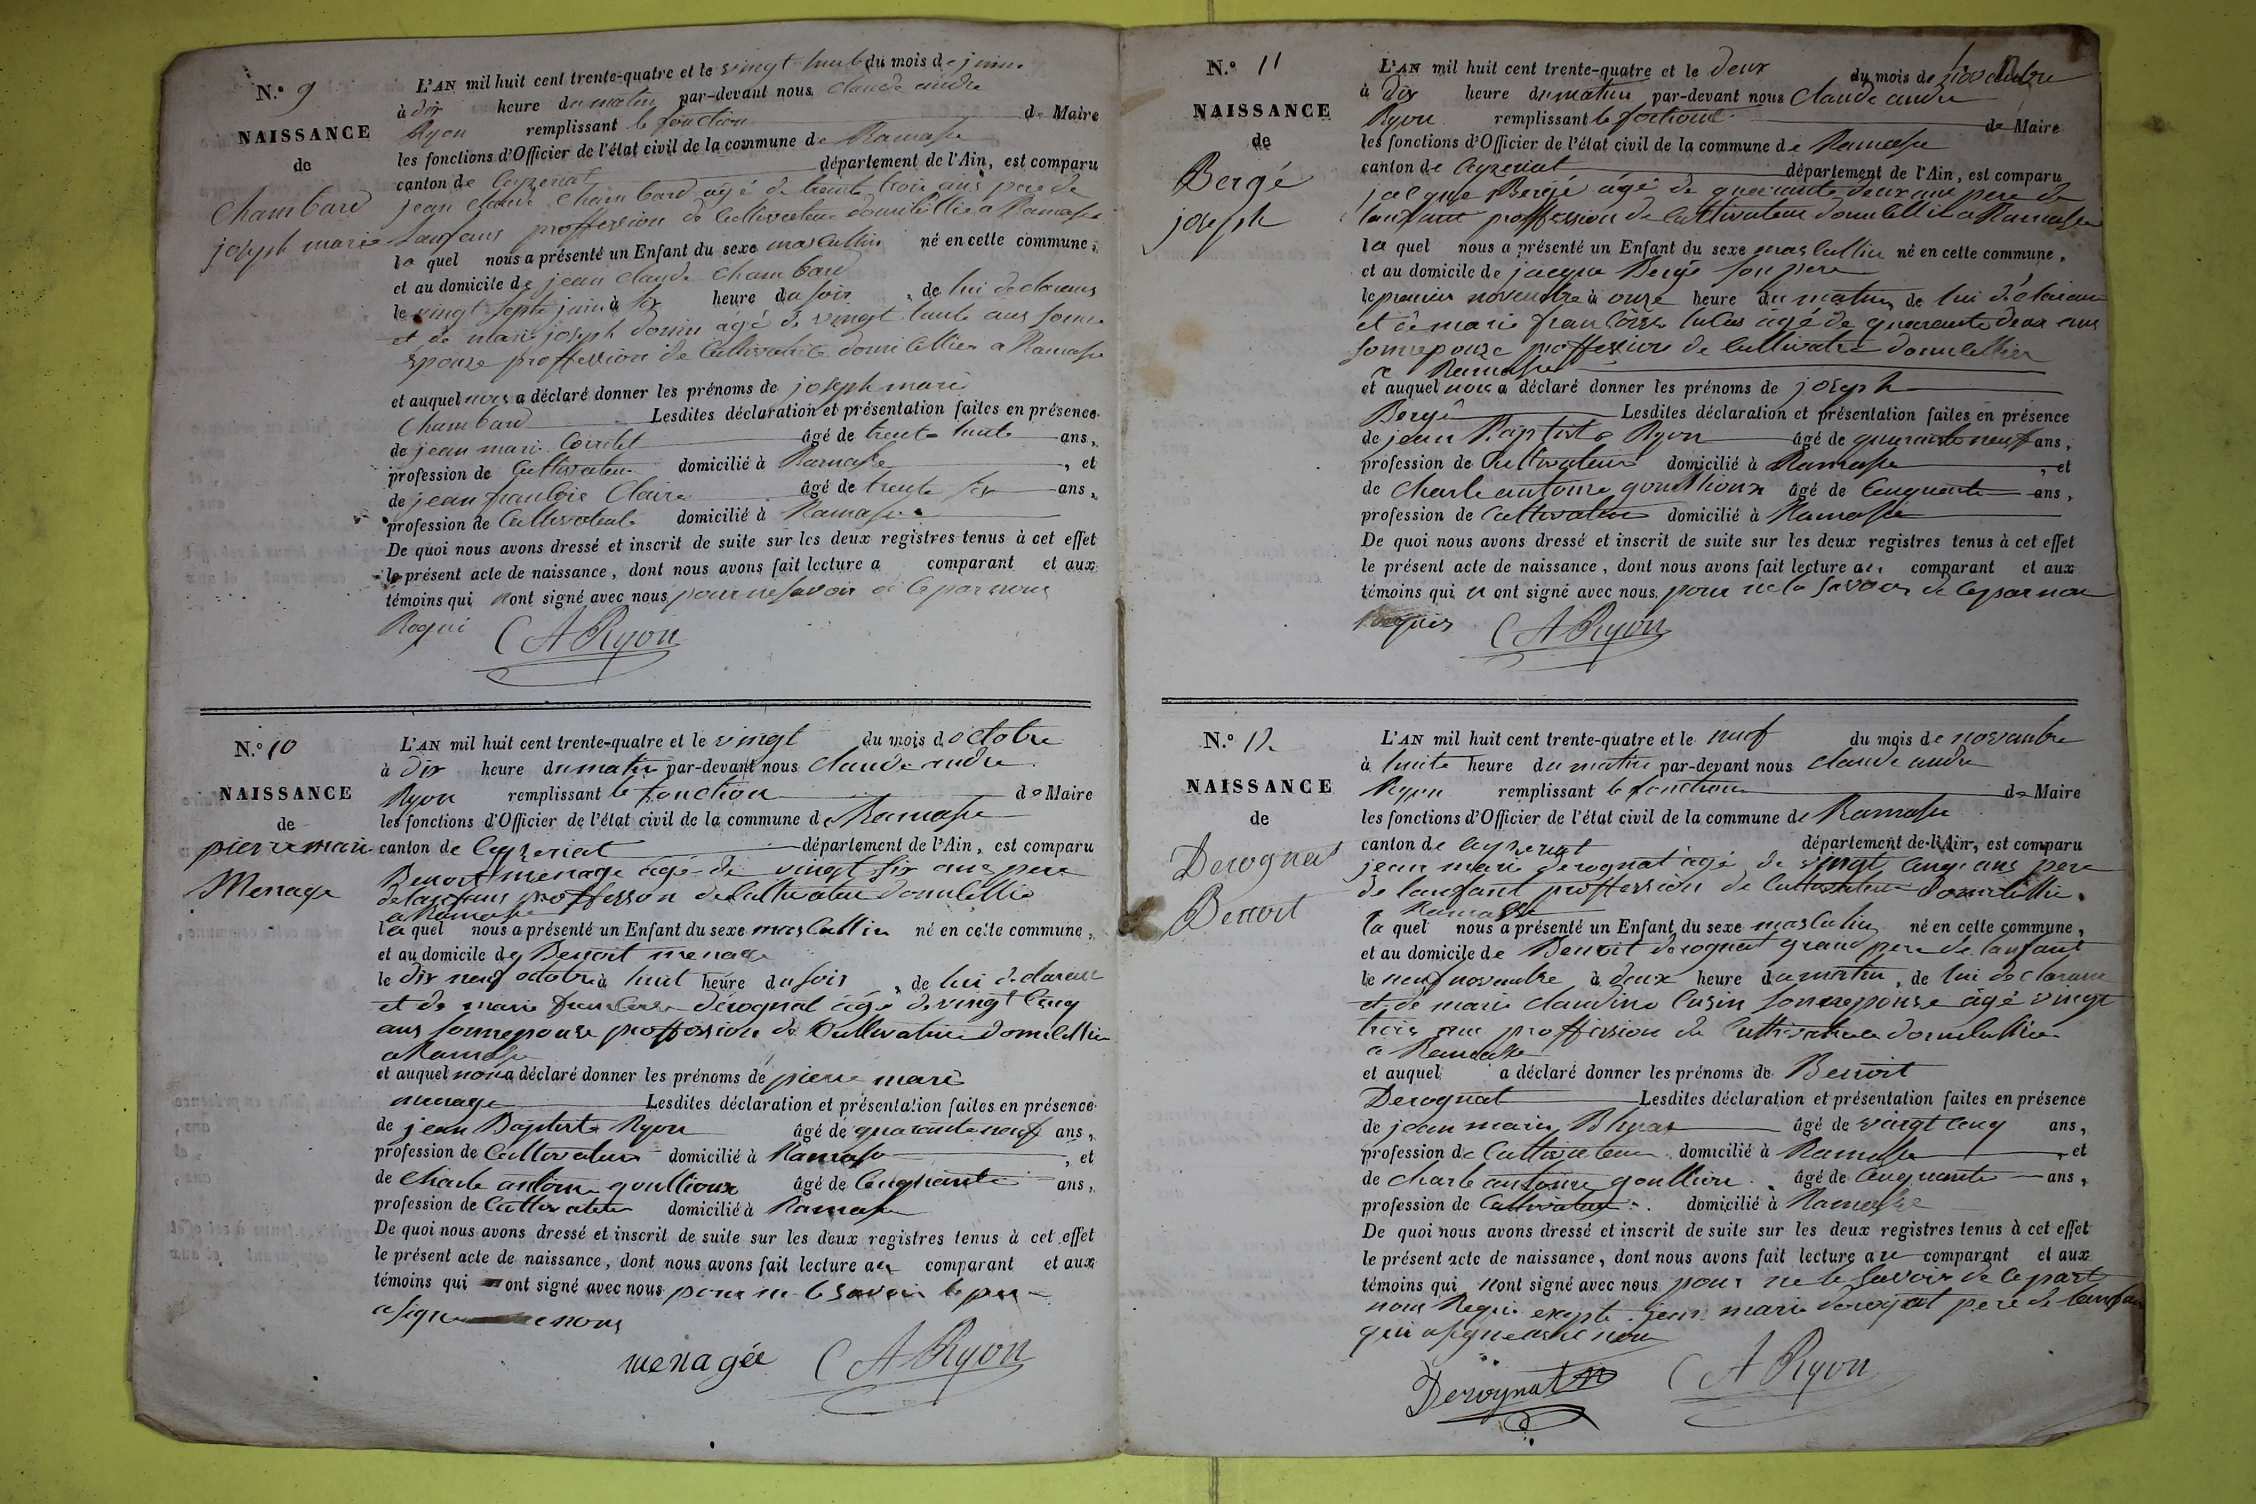 N.° 9
NAISSANCE
de
Chambard
joseph marie
L'AN mil huit cent trente-quatre et le vingt huit du mois de juin
à dix heure du matin par-devant nous Claude andre
Ryon remplissant le fonction de Maire
les fonctions d'Officier de l'état civil de la commune de Ramasse
canton de Ceyzeriat département de l'Ain, est comparu
jean claude Chambard agé de trente trois ans pere de
lanfans proffession de Cultivateur domicillié a Ramasse
le quel nous a présenté un Enfant du sexe masCullin né en cette commune,
et au domicile de jean claude Chambard
le vingt septe juin à six heure du soir, de lui declarans
et de marie joseph donin âgé de vingt huite ans sonne
Epouze proffession de Cultivatrice domicilliee a Ramasse
et auquel nous a déclaré donner les prénoms de joseph marie
Chambard Lesdites déclaration et présentation faites en présence
de jean marie âgé de trente huite ans,
profession de Cultivateur domicilié à Ramasse, et
de jean franCois Claire âgé de trente six ans,
profession de Cultivateur domicilié à Ramasse
De quoi nous avons dressé et inscrit de suite sur les deux registres tenus à cet effet
le présent acte de naissance, dont nous avons fait lecture a comparant et aux
témoins qui nont signé avec nous pour ne savoir de Ce par nous
Requi CA Ryon
N.° 10
NAISSANCE
de
pierre marie
Menage
L'AN mil huit cent trente-quatre et le vingt du mois d octobre
à dix heure du matin par-devant nous Claude andre
Ryon remplissant le fonction de Maire
les fonctions d'Officier de l'état civil de la commune de Ramasse
canton de Ceyzeriat département de l'Ain, est comparu
Benoit menage agé de vingt six ans pere
de lanfans proffesson de Cultivateur domicillié
a Ramasse
le quel nous a présenté un Enfant du sexe masCullin né en cette commune,
et au domicile de Benoit menage
le dix neuf octobre à huit heure du soir, de lui declarant
et de marie franCoise derognat âgé de vingt Cinq
ans sonnepouse proffossion de Cultivatrice domicillie
a Ramasse
et auquel nous a déclaré donner les prénoms de pierre marie
menage Lesdites déclaration et présentation faites en présence
de jean Baptiste Ryon âgé de quarante neuf ans,
profession de Cultivateur domicilié à Ramasse, et
de Charle antoine goullioux âgé de Cenquante ans,
profession de Cultivateur domicilié à Ramasse
De quoi nous avons dressé et inscrit de suite sur les deux registres tenus à cet effet
le présent acte de naissance, dont nous avons fait lecture au comparant et aux
témoins qui ont signé avec nous pour ne le savoir le pere
a signe nous
menagée CA Ryon
N.° 11
NAISSANCE
de
Bergé
joseph
L'AN mil huit cent trente-quatre et le deux du mois de novembre
à dix heure du matin par-devant nous Claude andre
Ryon remplissant le fonctions de Maire
les fonctions d'Officier de l'état civil de la commune de Ramasse
canton de Ceyzeriat département de l'Ain, est comparu
jacque Bergé âgé de quarante deux ans pere de
lanfant proffession de Cultivateur domicillié a Ramasse
le quel nous a présenté un Enfant du sexe masCullin né en cette commune,
et au domicile de jacque Bergé son pere
le premier novembre à onze heure du matin de lui déclarant
et de marie franCoise âgé de quarante deux ans
sonnepouze proffession de Cultivatrice domicillier
a Ramasse
et auquel nous a déclaré donner les prénoms de joseph
Bergé Lesdites déclaration et présentation faites en présence
de jean Baptiste Ryon âgé de quarante neuf ans,
profession de Cultivateur domicilié à Ramasse, et
de Charle antoine goullioux âgé de Cenquante ans,
profession de Cultivateur domicilié à Ramasse
De quoi nous avons dressé et inscrit de suite sur les deux registres tenus à cet effet
le présent acte de naissance, dont nous avons fait lecture au comparant et aux
témoins qui n ont signé avec nous pour ne le savoir de Ce par nou
Requis CA Ryon
N.° 12
NAISSANCE
de
Derognat
Benoit
L'AN mil huit cent trente-quatre et le neuf du mois de novembre
à huite heure du matin par-devant nous Claude andre
Ryon remplissant le fonction de Maire
les fonctions d'Officier de l'état civil de la commune de Ramasse
canton de Ceyzeriat département de l'Ain, est comparu
jean marie derognat âgé de vingt Cinq ans pere
de lanfant proffession de Cultivateur domicillié
Ramasse
le quel nous a présenté un Enfant du sexe masCulin né en cette commune,
et au domicile de Benoit derognat grand pere de lanfant
le neuf novembre à deux heure du matin, de lui declarant
et de marie claudine Cusin sonnepouse âgé vingt
trois ans proffession de Cultivatrice domicilliée
a Ramasse
et auquel a déclaré donner les prénoms de Benoit
Derognat Lesdites déclaration et présentation faites en présence
de jean marie âgé de vingt Cinq ans,
profession de Cultivateur domicilié à Ramasse, et
de Charle antoine goullion âgé de Cenquante ans,
profession de Cultivateur domicilié à Ramasse
De quoi nous avons dressé et inscrit de suite sur les deux registres tenus à cet effet
le présent acte de naissance, dont nous avons fait lecture au comparant et aux
témoins qui nont signé avec nous pour ne le savoir de Ce part
nous Requi exepte jean marie derognat pere de lanfan
qui a signe avec nou
Derognat CA Ryon